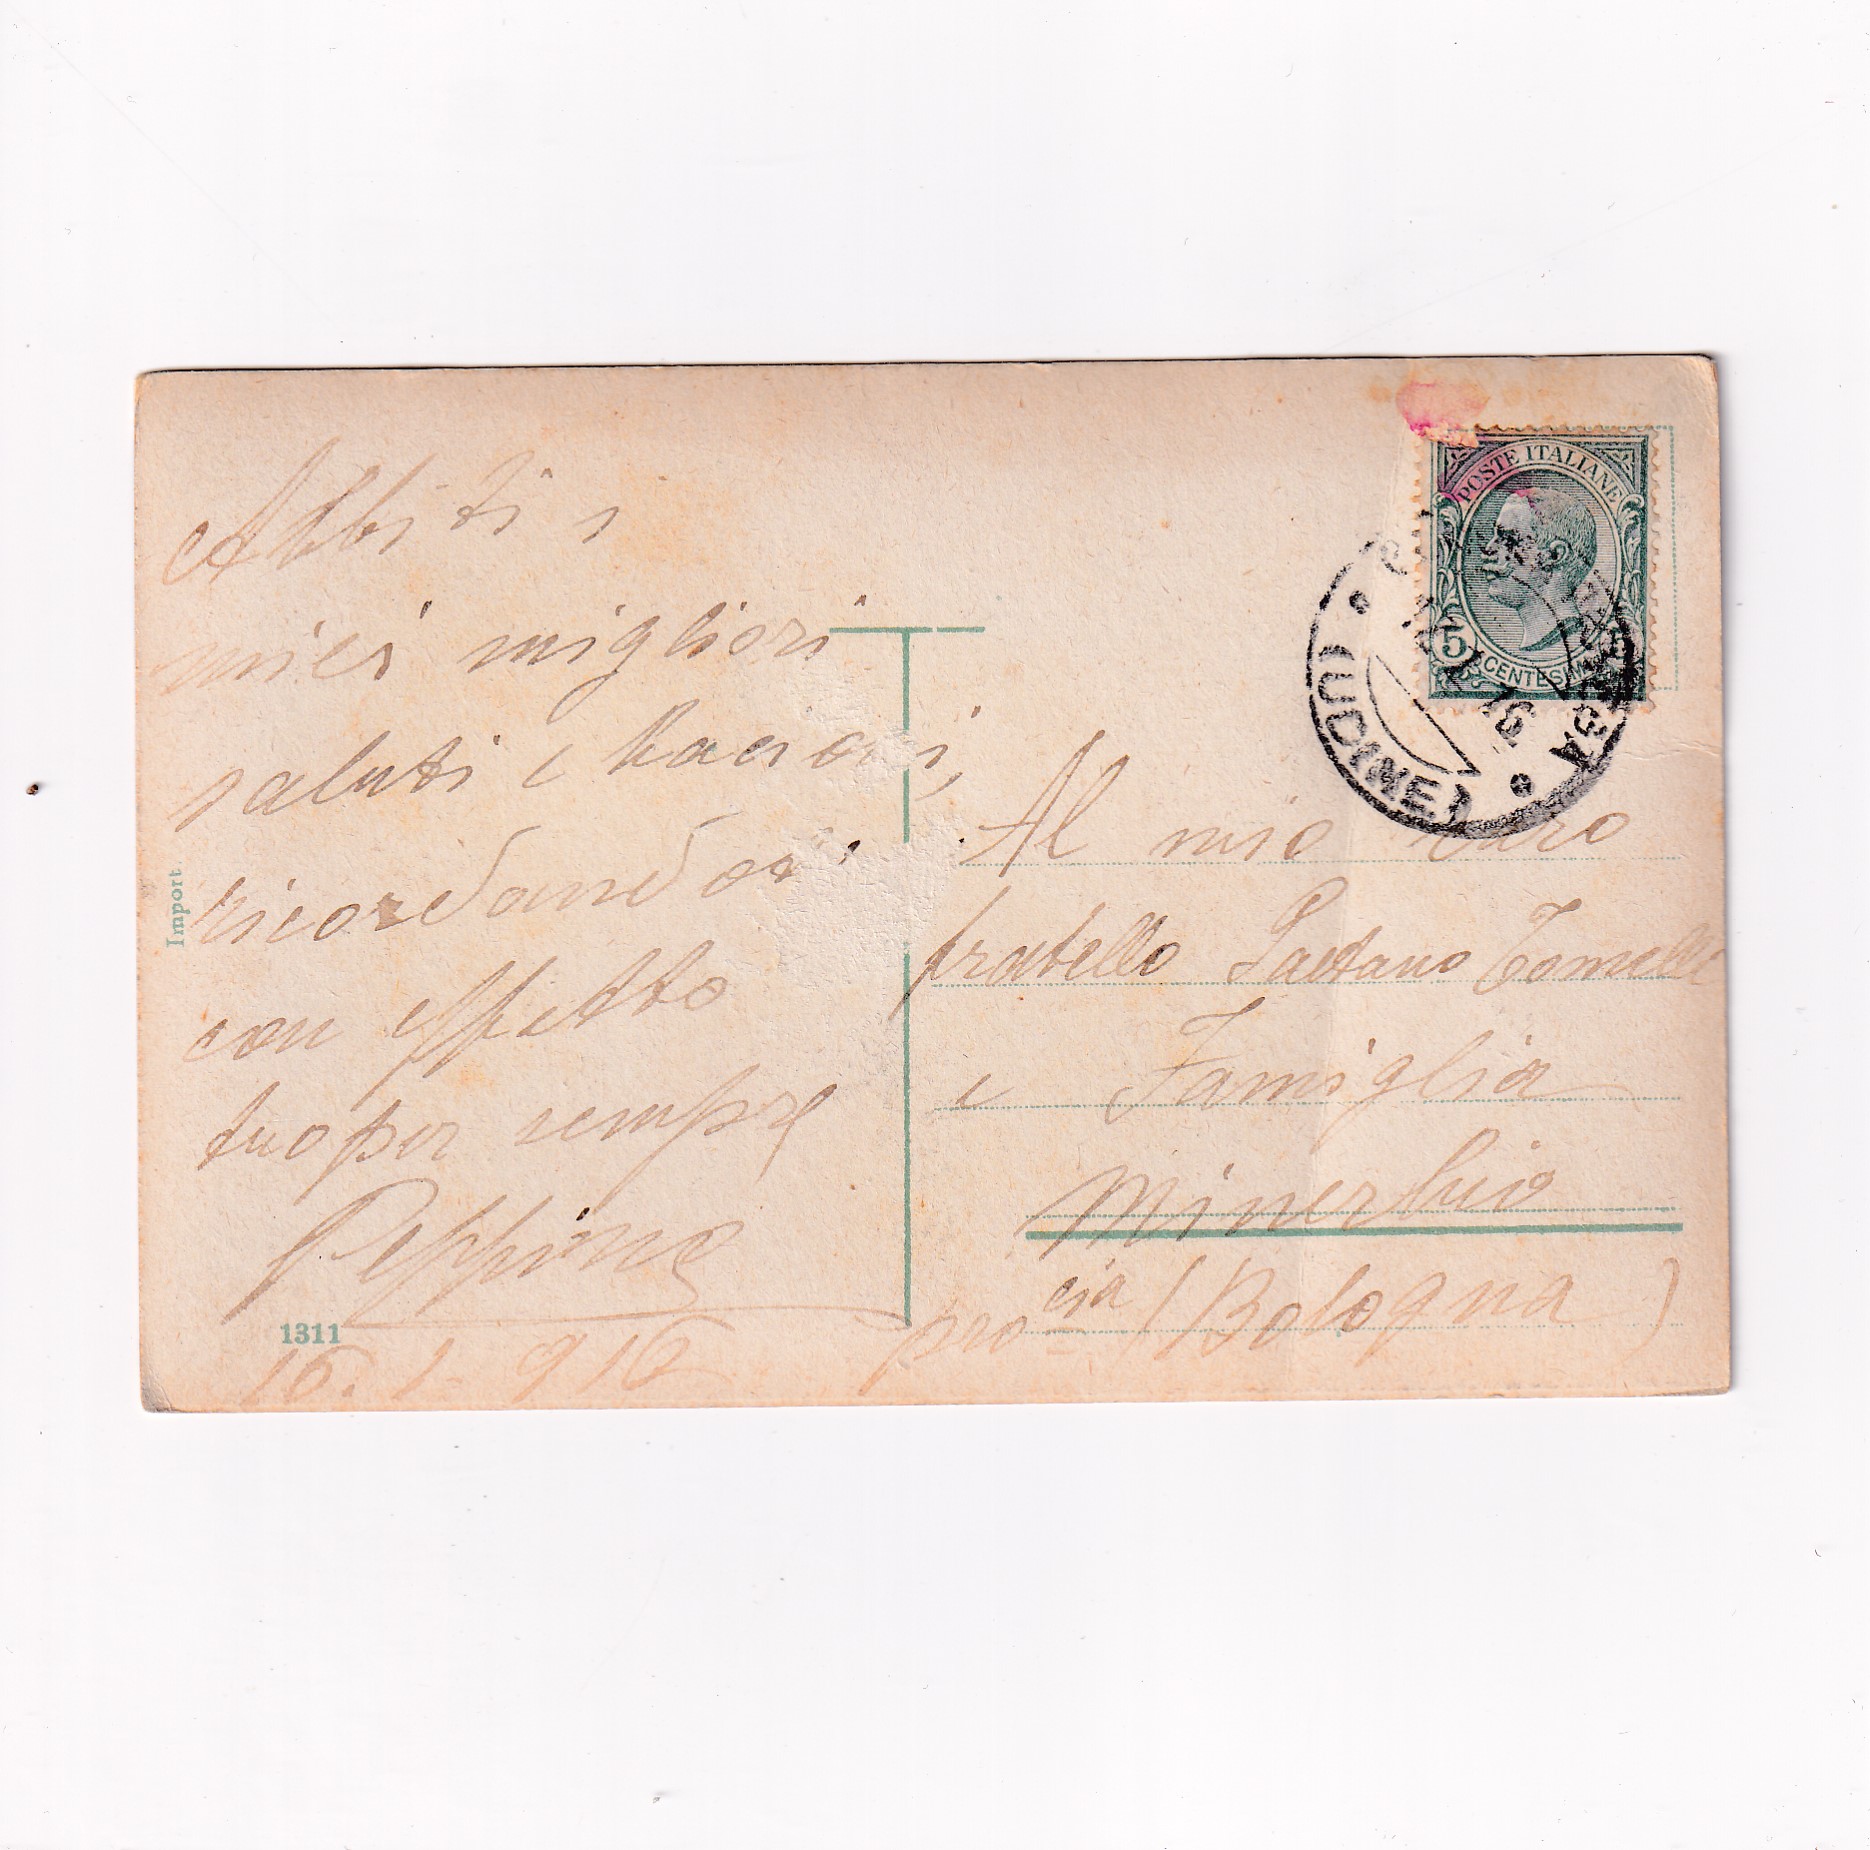 Abbiti i
miei migliori
saluti e bacioni,
ricordandoti
con affetto
tuo per sempre
Peppino
16. 1. 916
Import
1311
POSTE ITALIANE
5
CENTESIMI
(UDINE)
16
Al mio caro
fratello Gaetano Tomelli
e Famiglia
Minerbio
procia (Bologna)